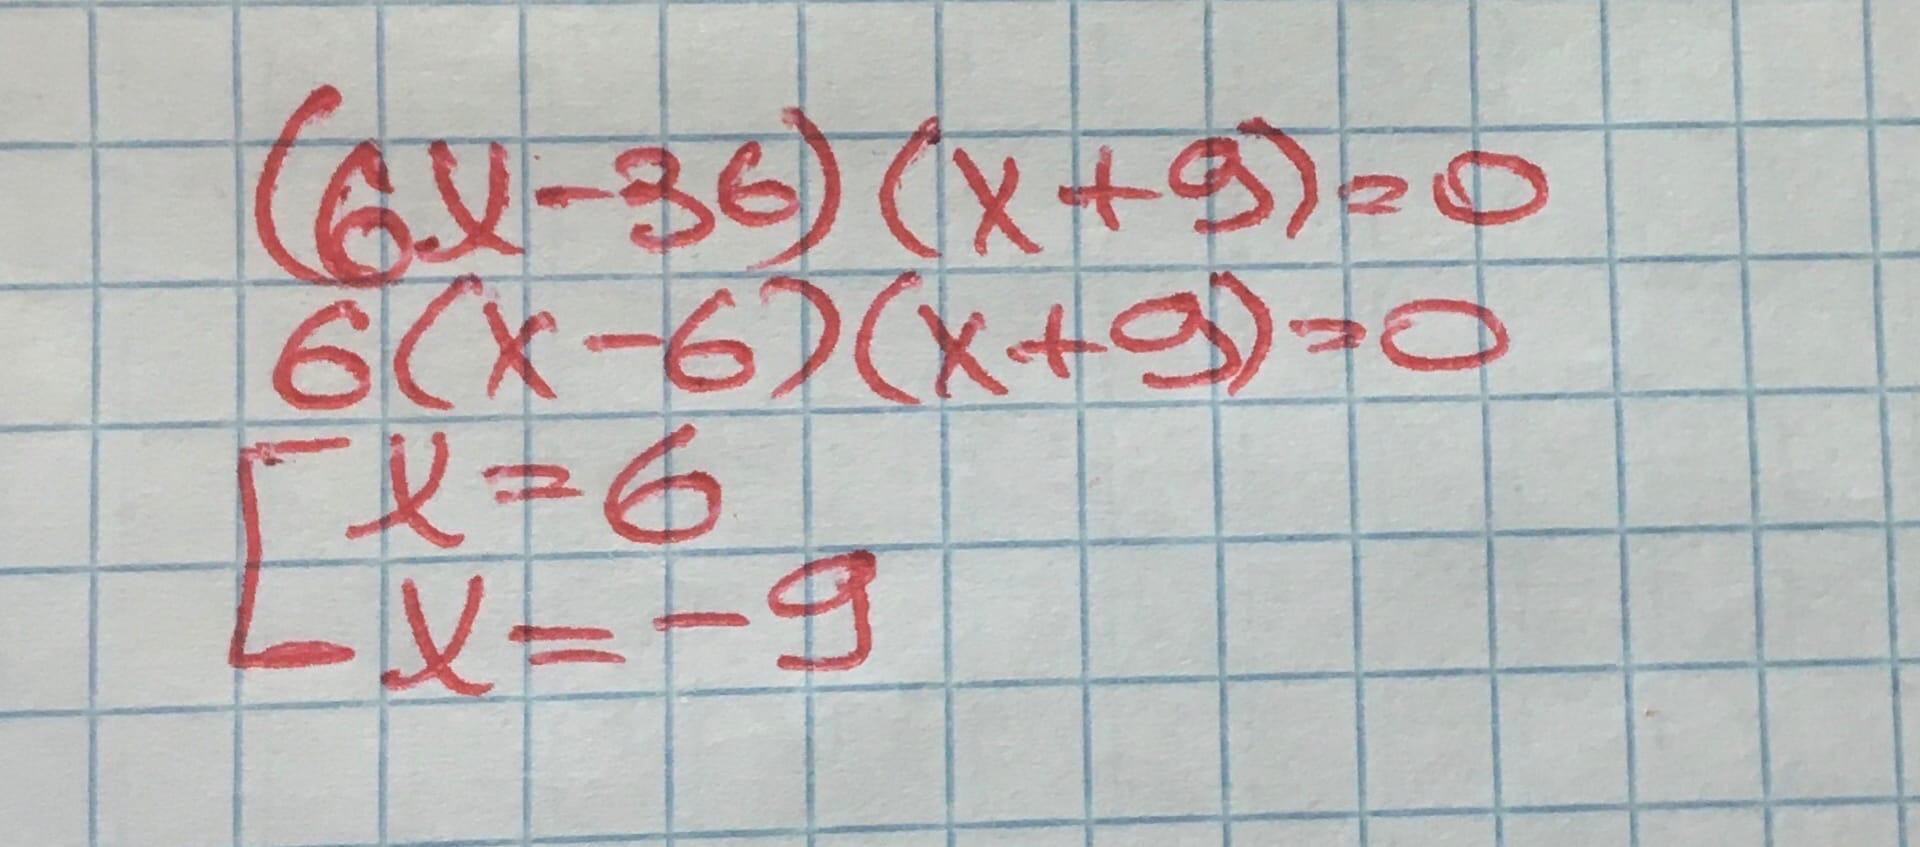 (6x-36)(x+9)=0
6(x-6)(x+9)=0
x=6
x=-9